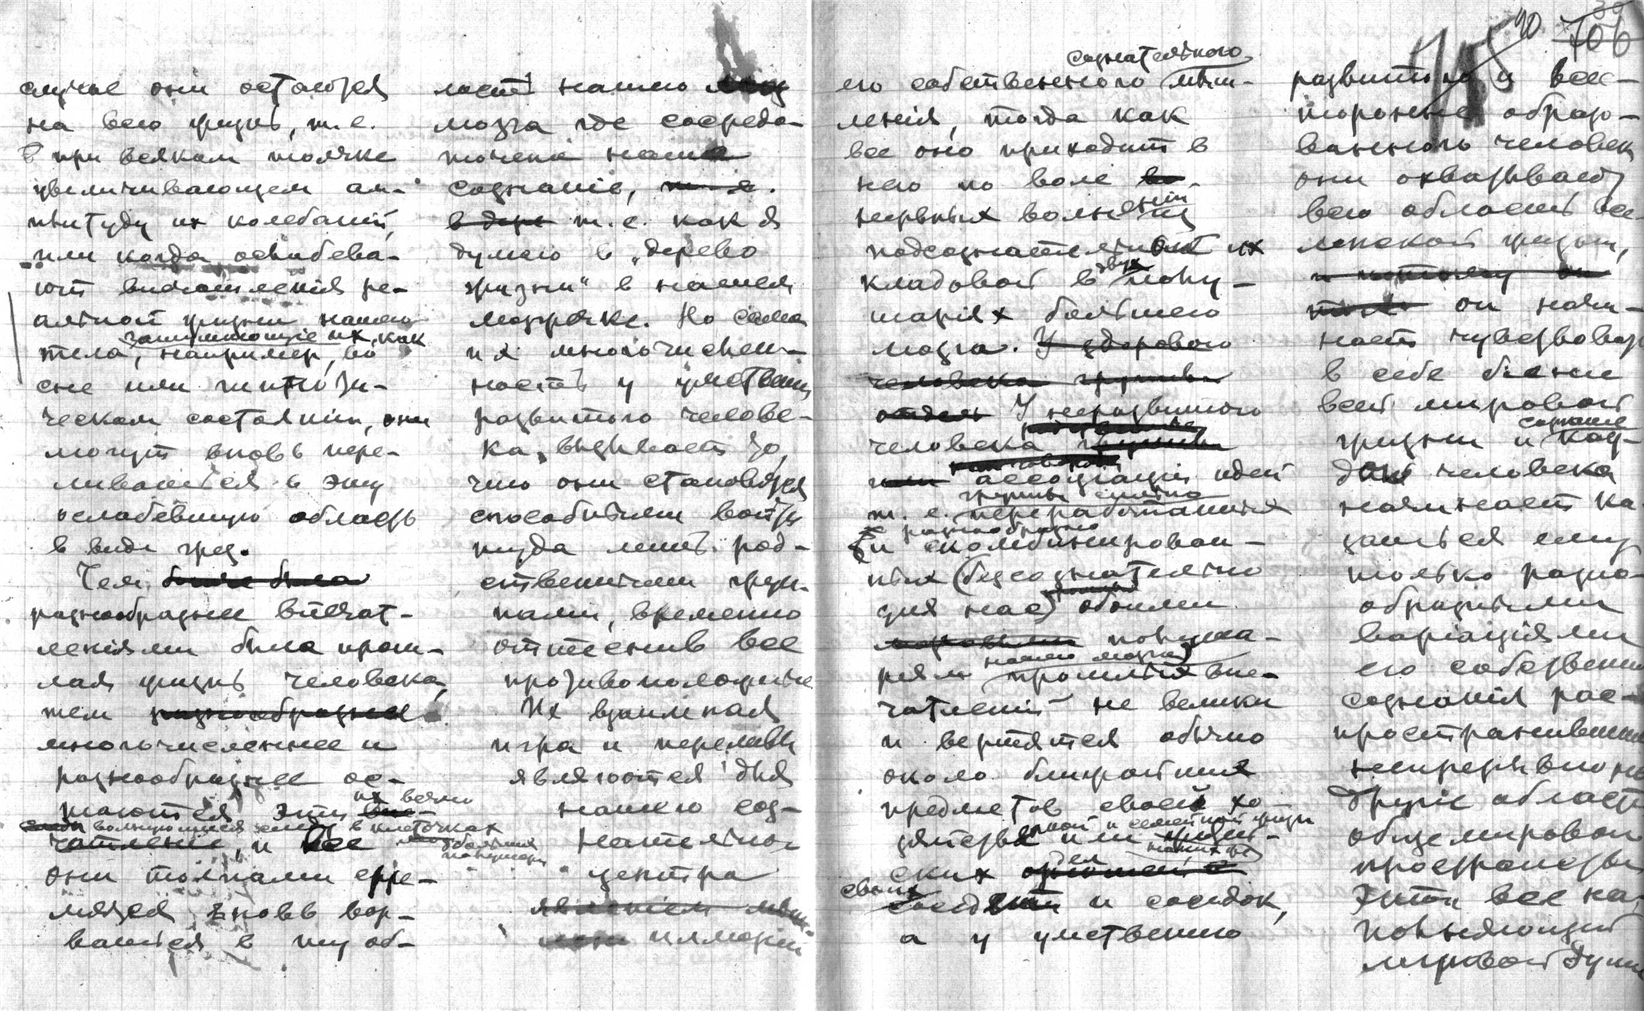 случае они остаются
на всю жизнь, т.е.
при всяком толчке
увеличивающем ам-
плитуду их колебаний,
или когда ослабева-
ют впечатления ре-
альной жизни нашего
заглушающие их, как
тела, например, во
сне или гипноти-
ческом состоянии, они
могут вновь пере-
ливаться в эту
ослабевшую область
в виде грез.
Чем более была
разнообразнее впечат-
лениями была прош-
лая жизнь человека,
тем разнообразнее
многочисленнее и
разнообразнее ос-
их вечно
таются эти впе-
волнующиеся в клеточках
чатления, и все
больших полушарий
они толпами стре-
мятся вновь вор-
ваться в ту об-
ласть нашего
мозга где сосредо-
точено наше
сознание, т.е.
т.е. как я
думаю в „дерево
жизни" в нашем
мозжечке. Но сама
их многочислен-
ность у умственно
развитого челове-
ка, вызывает то,
что они становятся
способными войти
туда лишь род-
ственными груп-
пами, временно
оттеснив все
противоположные
Их взаимная
игра и переливы
являются для
нашего соз-
нательного
центра
явлением мыш-
сознательного
его собственного мыш-
ления, тогда как
все оно приходит в
него по воле
нервных волнений
подсознательных их
двух
кладовой в полу-
шариях большего
мозга. У здорового
человека группы
У неразвитого
человека группы
ассоциации идей
группы
т.е. переработанных
разнообразно
и скомбинирован-
ных (бессознательно
для нас) обоими
полуша-
нашего мозга
риями прошлых впе-
чатлений не велики
и вертятся обычно
около ближайших
предметов своей хо-
и семейной жизни
зяйства или
ских
своих
и соседок,
а у умственно
40
706
развитого и все-
торонне образо-
ванного человека
они охватывают
всю область все-
ленской жизни,
и потому он
он начи-
нает чувствовать
в себе биение
всей мировой
сознание
жизни и каж-
дого человека
начинает ка-
заться ему
только разно-
образными
вариациями
его собственного
сознания рас-
пространившимися
непрерывно на
другие области
общемирового
пространства
Этой все на-
полняющей
мировой души